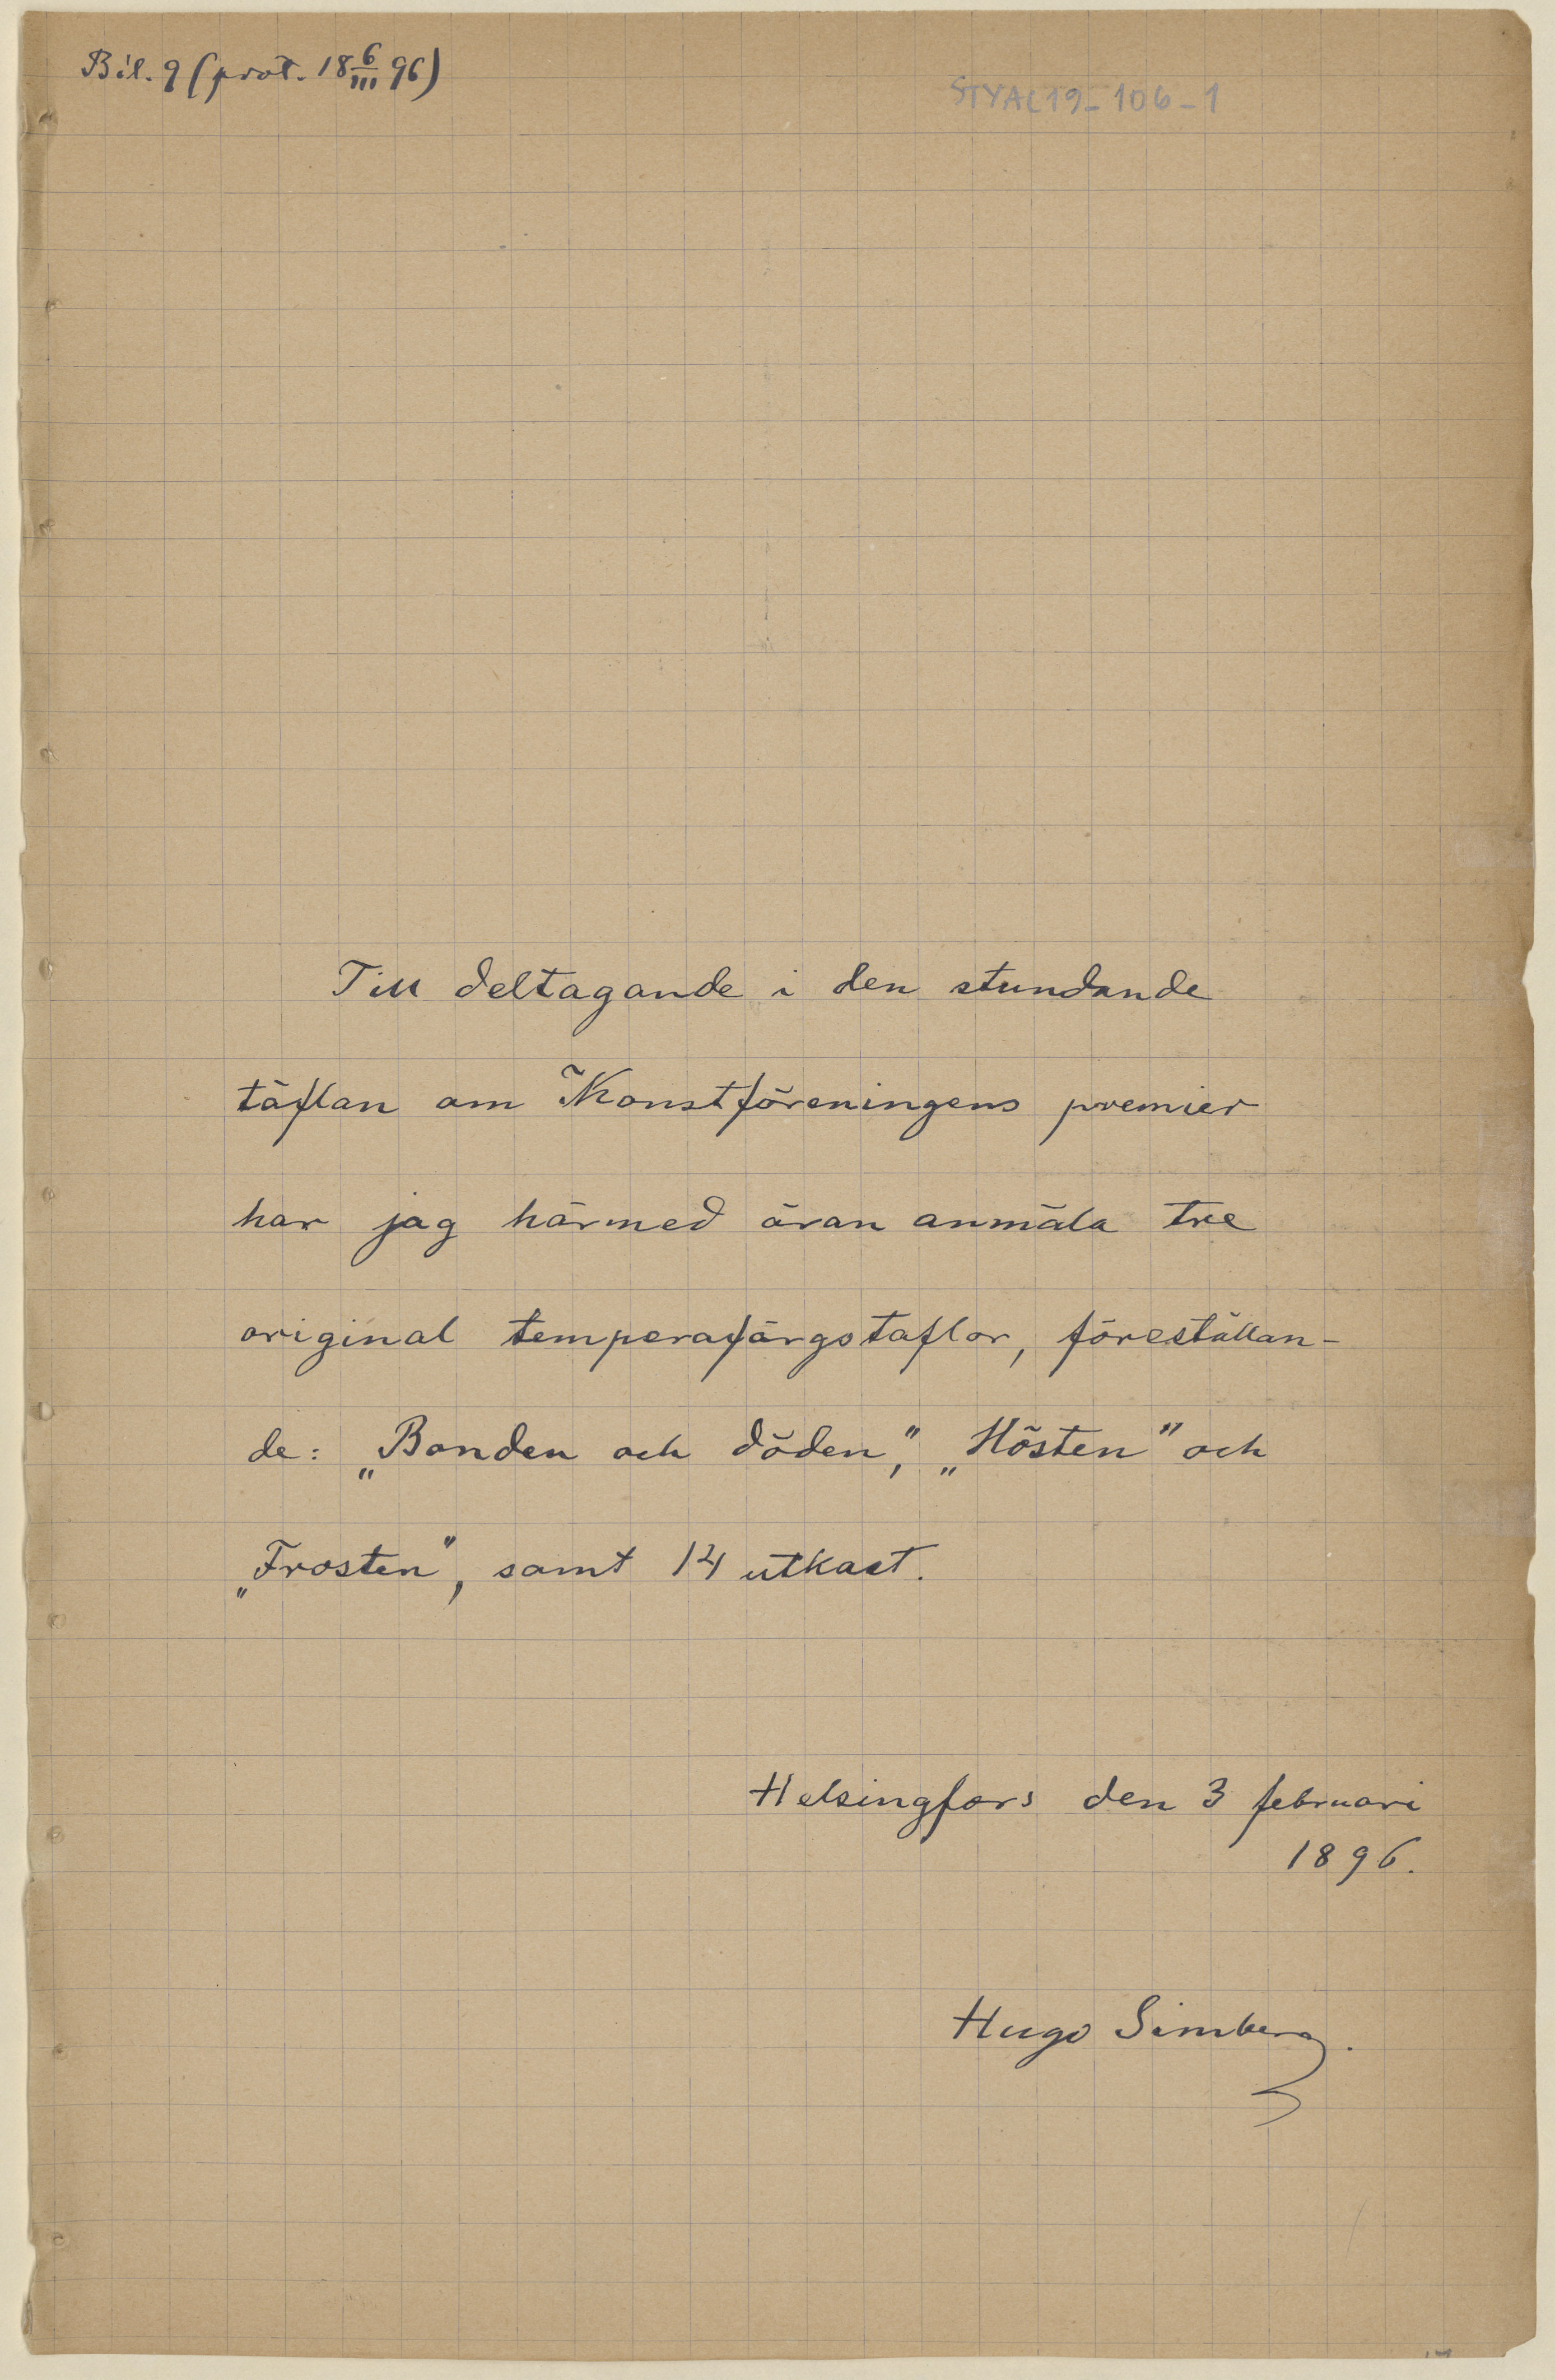 Bil. 9 (prot. 18 6/III 96)
STYAL19-106-1
Till deltagande i den stundande
täflan om Konstföreningens premier
har jag härmed äran anmäla tre
original temperafärgstaflor, föreställan-
de: „Bonden och döden,” „Hösten” och
„Frosten”, samt 14 utkast.
Helsingfors den 3 februari
1896.
Hugo Simberg.